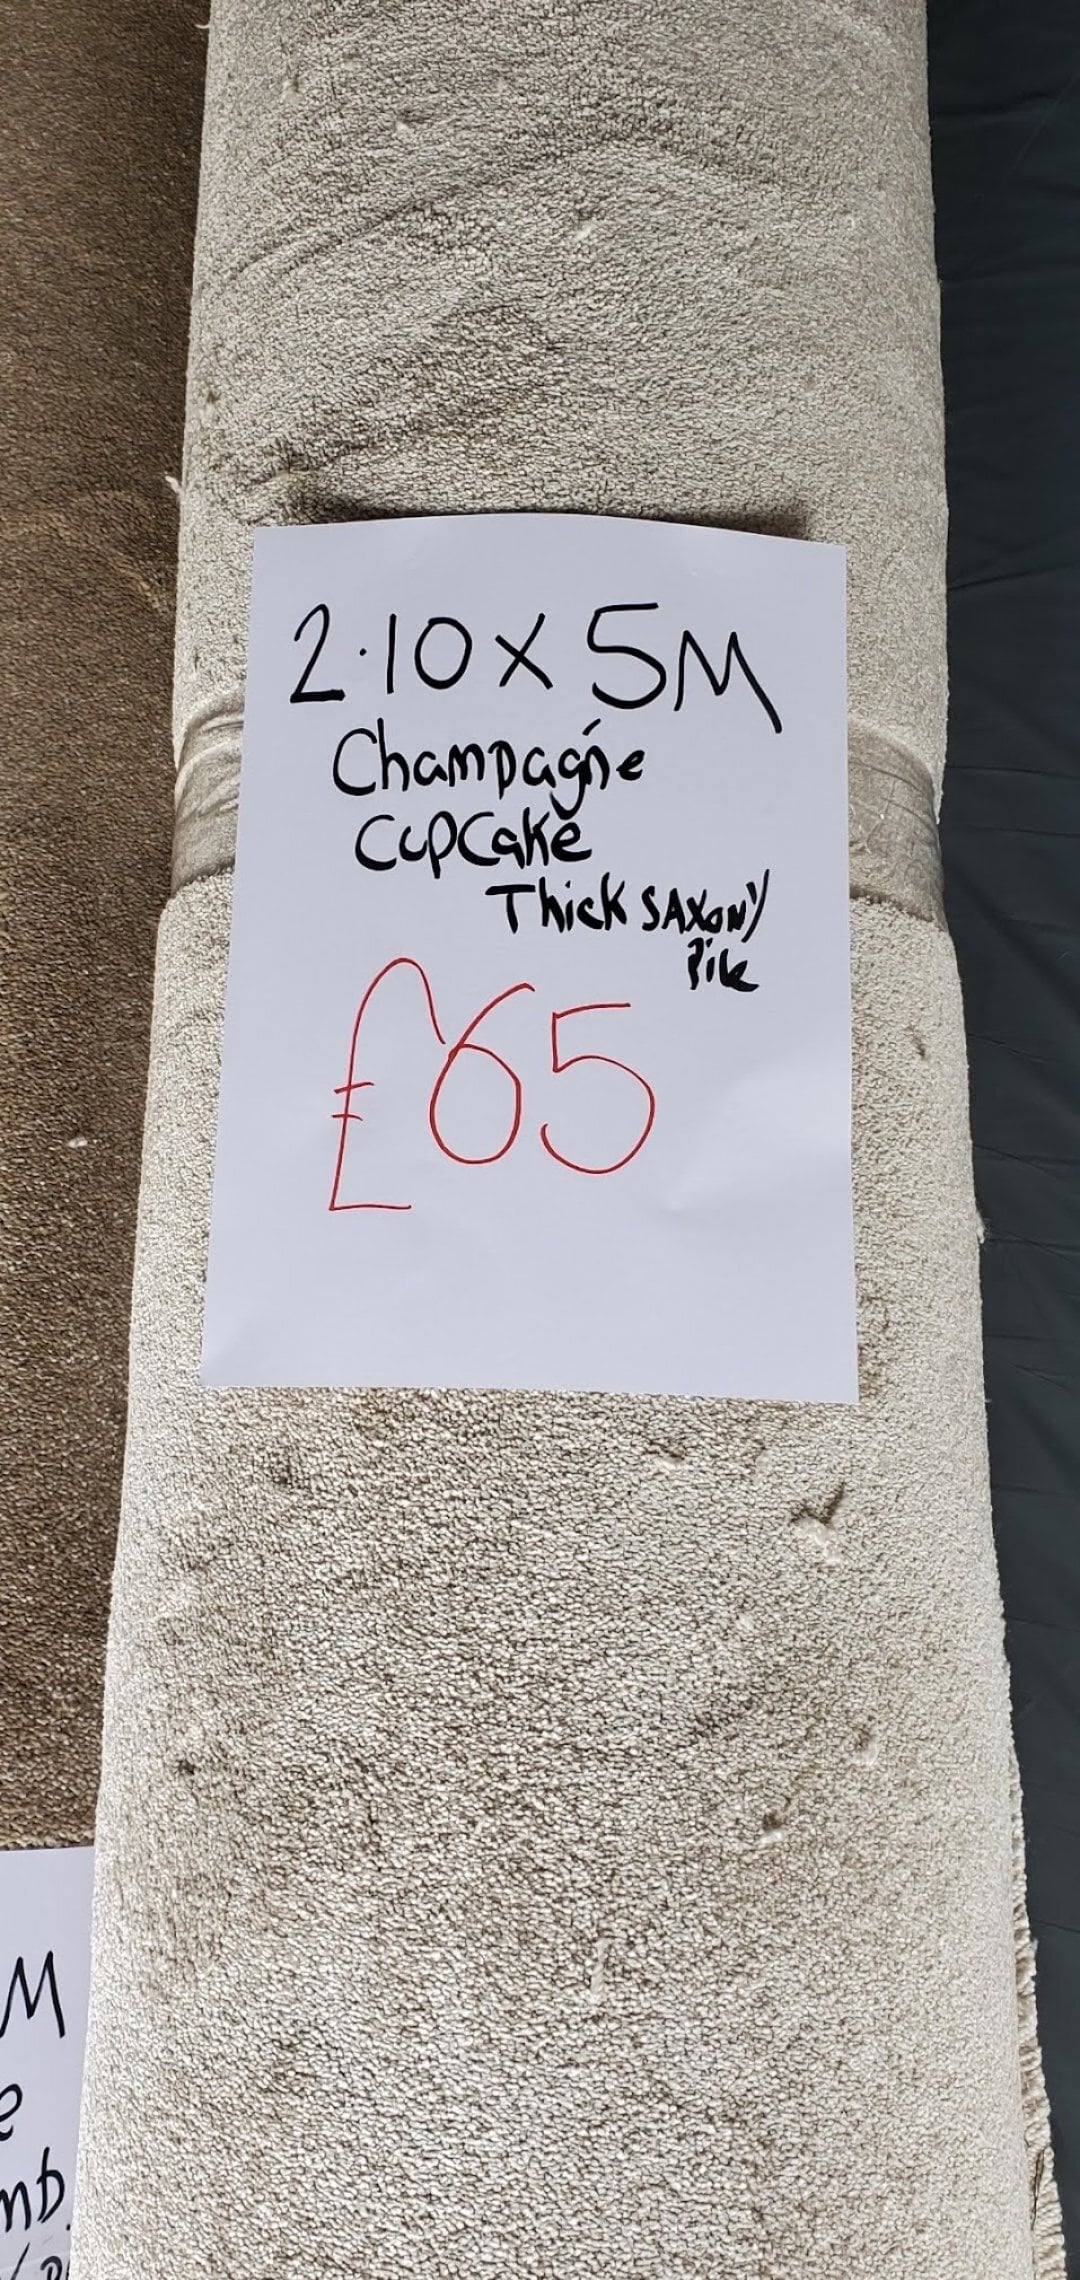 2.10 x 5M
Champagne
Cupcake
Thick SAXONY
Pile
£65
M
e